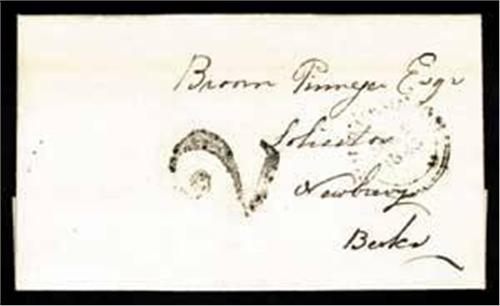 Broom Pinneger Esqr
Solicitor
Newbury
Berks
2